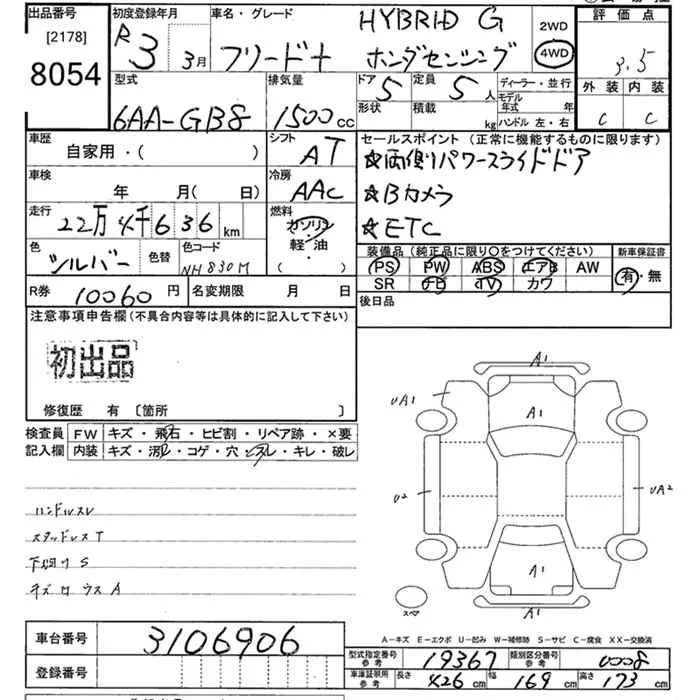 出品番号 初度登録年月 車名・グレード HYBRID G 2WD 評価点
[2178] R3 3月 フリード+ ホンダセンシング 4WD 3.5
8054 型式 排気量 ドア 定員 ディーラー・並行 外装 内装
6AA-GB8 1500cc 5 5人 モデル年式 年 C C
形状 積載 kg ハンドル 左・右
車歴 シフト セールスポイント(正常に機能するものに限ります)
自家用・( ) AT ☆両側パワースライドドア
車検 冷房 ☆Bカメラ
年 月( 日) AAC ☆ETC
走行 燃料
22万4千636km ガソリン・軽油・( )
色 色替 色コード 装備品(純正品に限り○をつけてください) 新車保証書
シルバー NH830M PS PW ABS エアB AW 有・無
SR TV カワ
R券 10060円 名変期限 月 日 後日品
注意事項申告欄(不具合内容等は具体的に記入して下さい)
初出品
修復歴 有 〔箇所 〕
検査員 FW キズ・飛石・ヒビ割・リペア跡・×要
記入欄 内装 キズ・汚レ・コゲ・穴・スレ・キレ・破レ
ハンドルスレ
スタッドレスT
下回りS
A1
UA1
A1
U2
UA2
A1
スペア
A1
A-キズ E-エクボ U-凹み W-補修跡 S-サビ C-腐食 XX-交換済
車台番号 3106906
型式指定番号 参考 19367 類別区分番号 参考 0008
登録番号 車庫証明用 参考 長さ 426cm 幅 169cm 高さ 173cm